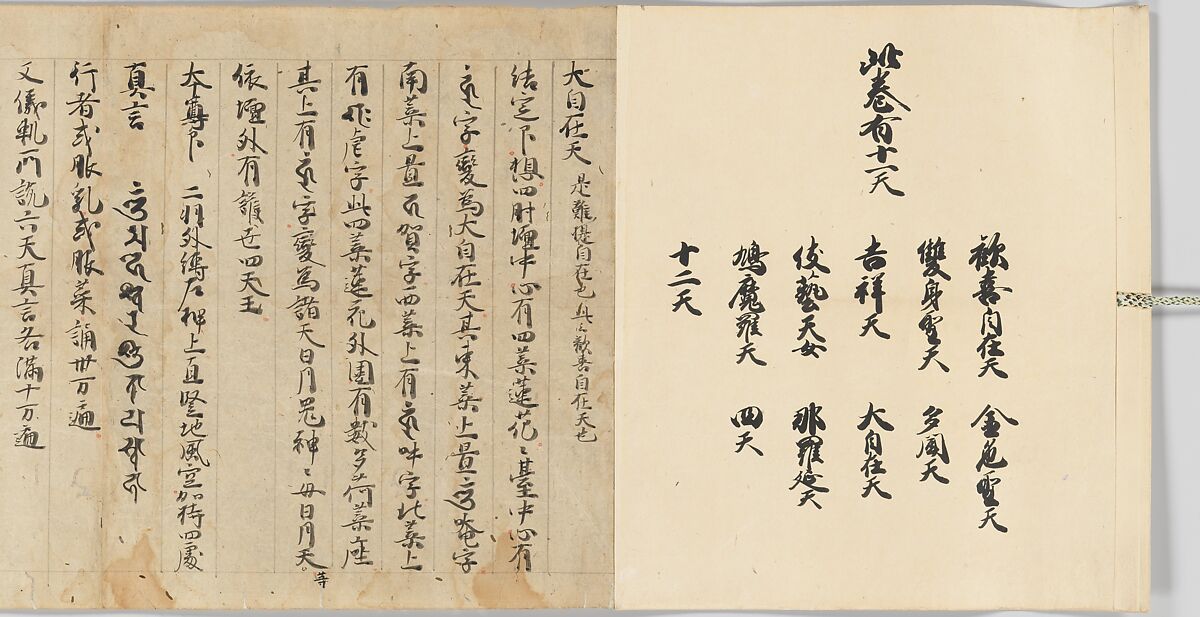 此卷有十一天
歓喜自在天 金色聖天
雙身聖天 多聞天
吉祥天 大自在天
伎藝天女 那羅延天
鳩魔羅天 四天
十二天
大自在天 是難提自在也此云歓喜自在天也
結定印想四肘壇中心有四葉蓮花〻臺中心有
字變為大自在天其東葉上置 唵字
南葉上置 賀字西葉上有 吽字北葉上
有 字此四葉蓮花外圍有數多荷葉座
其上有 字變為諸天日月鬼神〻毋日月天等
依壇外有護世四天王
本尊印 二羽外縛右押上直竪地風空加持四處
真言
行者或服乳或服菜誦卅万遍
又儀軌所説六天真言各満十万遍